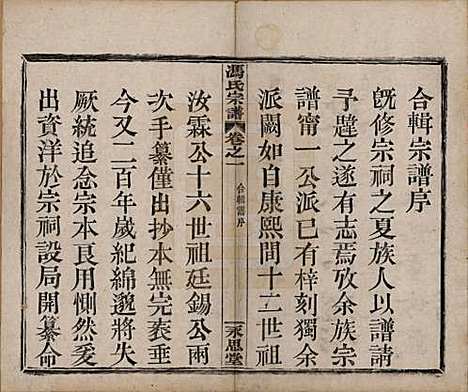 合輯宗譜序
既修宗祠之夏族人以譜請
予韙之遂有志焉攷余族宗
譜甯一公派已有梓刻獨余
派闕如自康熙間十二世祖
馮氏宗譜
卷之一
合輯譜序
永思堂
汝霖公十六世祖廷錫公兩
次手纂僅出抄本無完袠垂
今又二百年歲紀綿邈將失
厥統追念宗本良用惻然爰
出資洋於宗祠設局開纂命